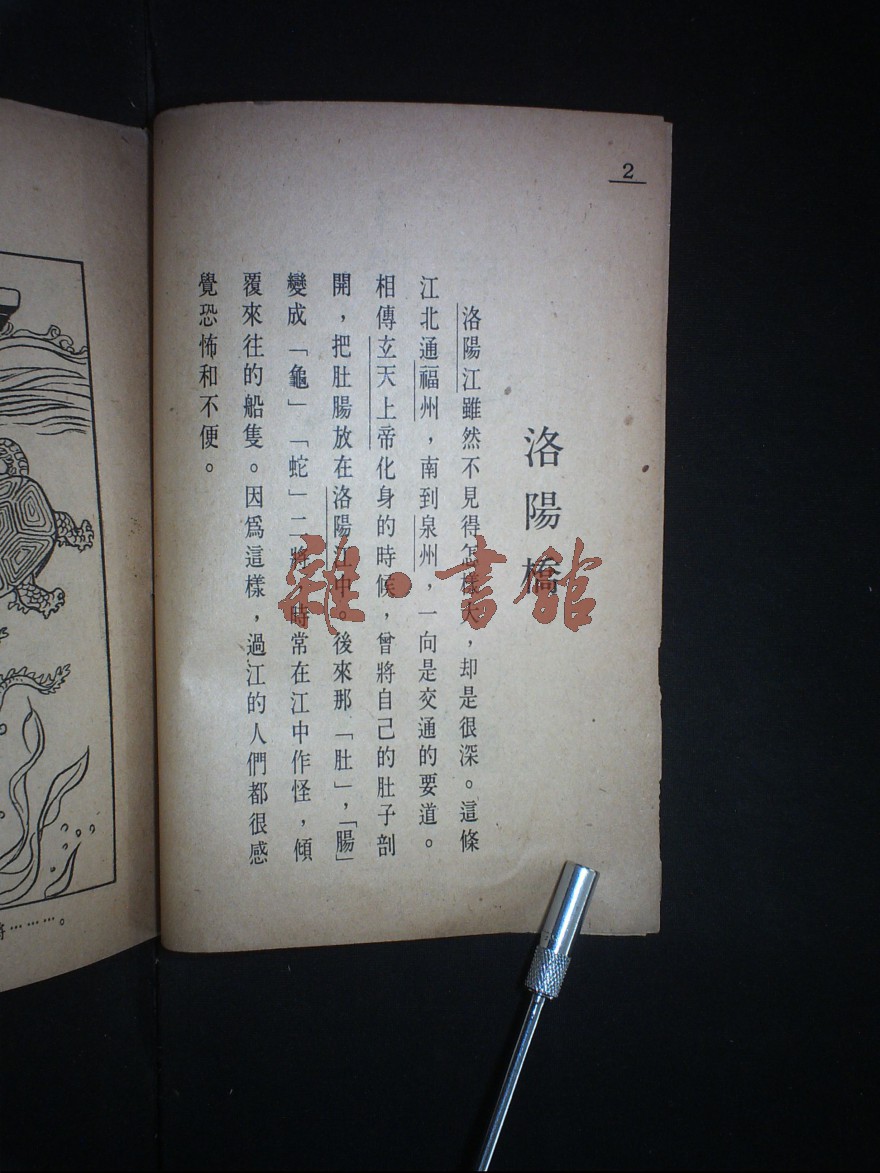 2
洛陽橋
洛陽江雖然不見得怎樣大，却是很深。這條
江北通福州，南到泉州，一向是交通的要道。
相傳玄天上帝化身的時候，曾將自己的肚子剖
開，把肚腸放在洛陽江中。後來那「肚」，「腸」
變成「龜」「蛇」二將，時常在江中作怪，傾
覆來往的船隻。因爲這樣，過江的人們都很感
覺恐怖和不便。
將………。
雜·書館